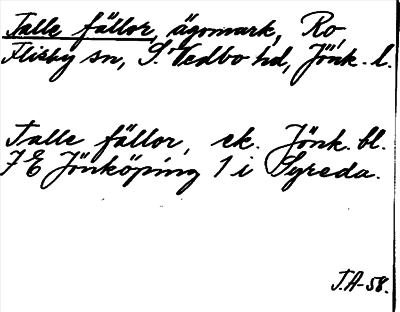 Talle fällor, ägomark, Ro,
Flisby sn, S. Vedbo hd, Jönk. l.
Talle fällor, ek. Jönk. bl.
7 E Jönköping 1 i Syreda.
J.A-58.